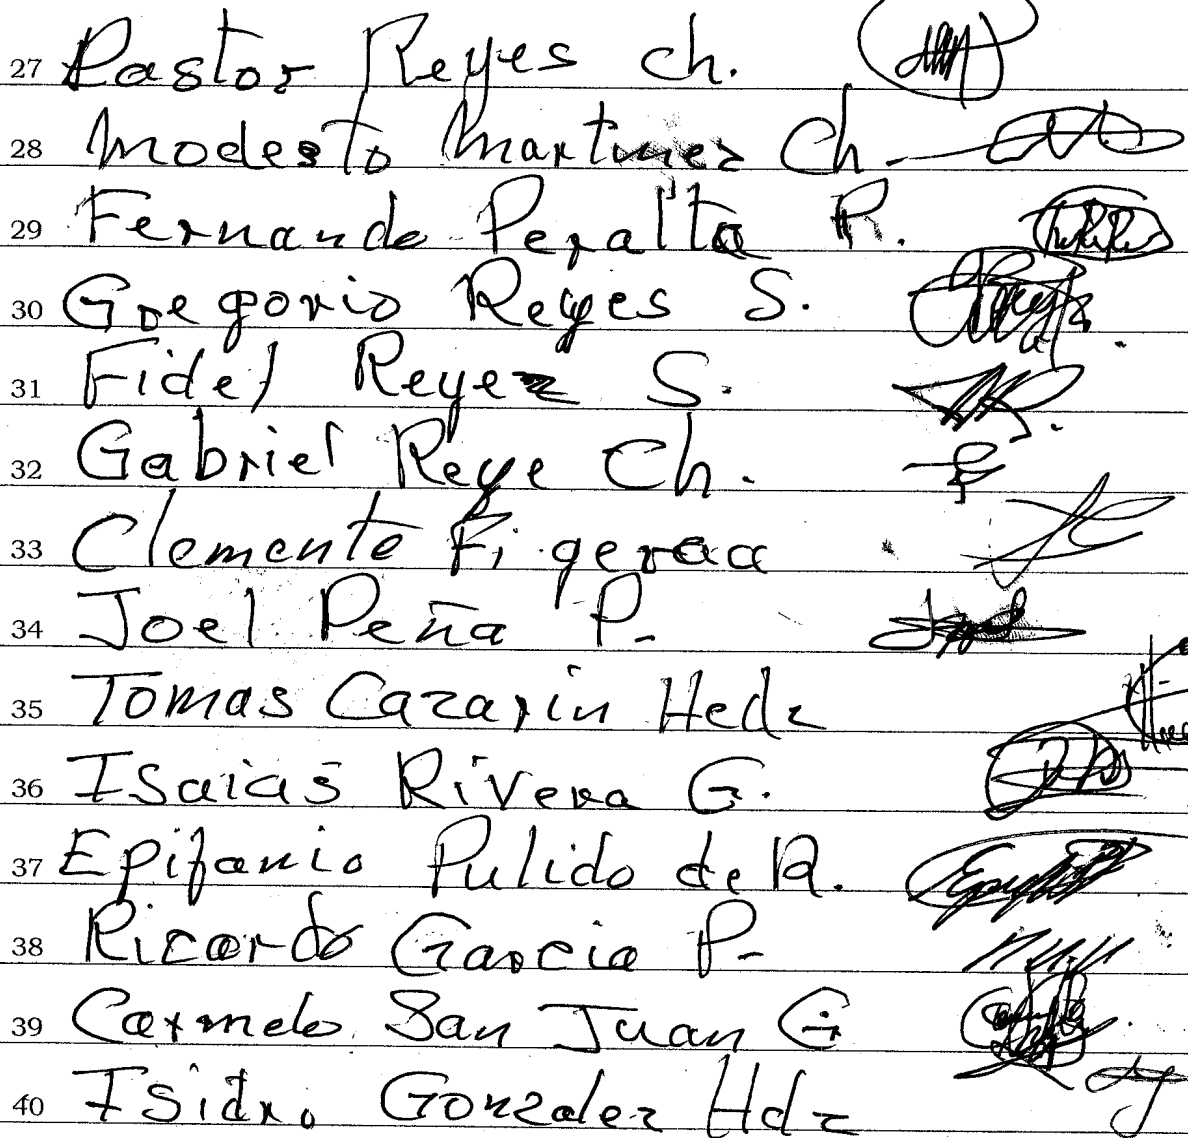 27 Pastor Reyes ch.
28 Modesto Martinez Ch.
29 Fernando Peralta R.
30 Gregorio Reyes S.
31 Fidel Reyez S.
32 Gabriel Reye Ch.
33 Clemente Figeraa
34 Joel Peña P.
35 Tomas Cazarin Hedz
36 Isaias Rivera G.
37 Epifanio Pulido de R.
38 Ricardo Garcia P.
39 Carmelo San Juan G
40 Isidro Gonzalez Hdz